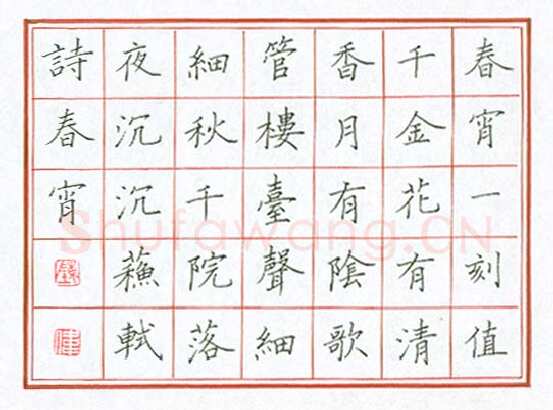 春宵一刻值
千金花有清
香月有陰歌
管樓臺聲細
細秋千院落
夜沉沉蘓軾
詩春宵
Shufawang.CN